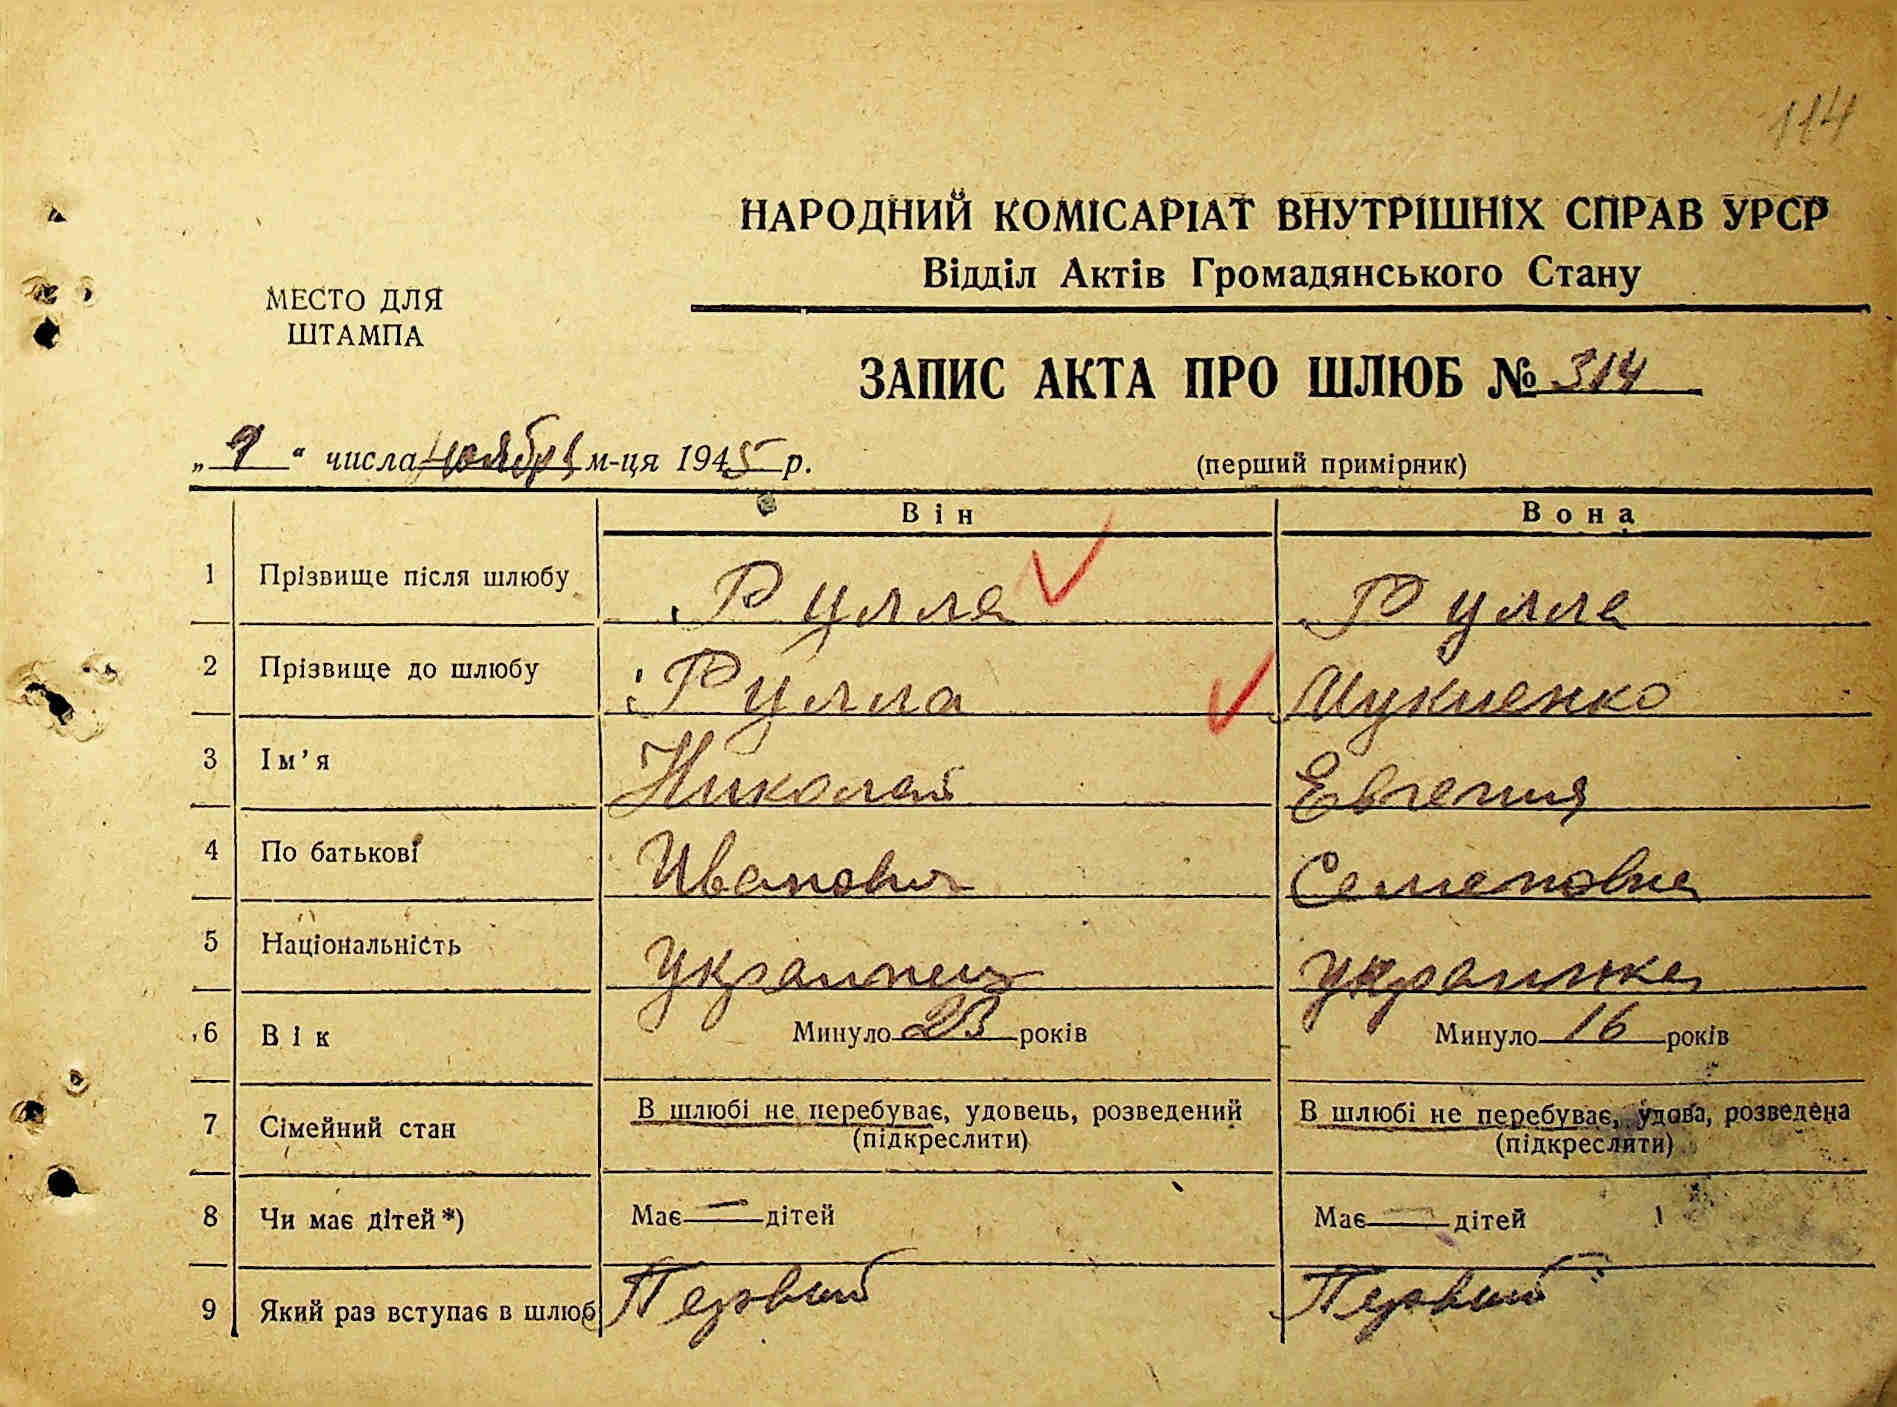 114
НАРОДНИЙ КОМІСАРІАТ ВНУТРІШНІХ СПРАВ УРСР
Відділ Актів Громадянського Стану
МЕСТО ДЛЯ
ШТАМПА
ЗАПИС АКТА ПРО ШЛЮБ № 314
„9“ числа ноября м-ця 1945 р.
(перший примірник)
Він Вона
1 Прізвище після шлюбу Рулла Рулла
2 Прізвище до шлюбу Рулла
3 Ім'я Николай Евгения
4 По батькові Иванович Семеновна
5 Національність украинец украинка
6 Вік Минуло 23 років Минуло 16 років
7 Сімейний стан В шлюбі не перебуває, удовець, розведений В шлюбі не перебуває, удова, розведена
(підкреслити) (підкреслити)
8 Чи має дітей*) Має — дітей Має — дітей
9 Який раз вступає в шлюб Первый Первый